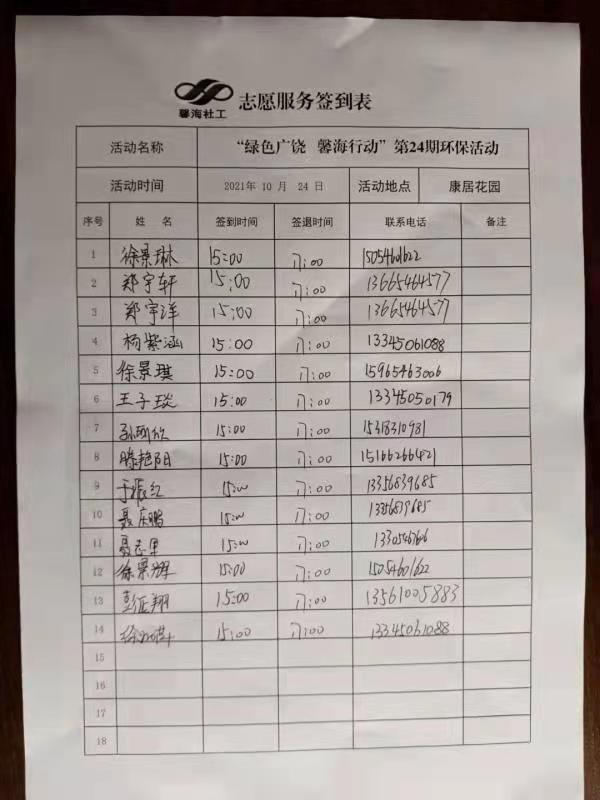 馨海社工 志愿服务签到表
活动名称 “绿色广饶 馨海行动”第24期环保活动
活动时间 2021年 10 月 24 日 活动地点 康居花园
序号 姓 名 签到时间 签退时间 联系电话 备注
1 徐景琳 15:00 17:00 15054601622
2 郑宇轩 15:00 17:00 13665464577
3 郑宇洋 15:00 17:00 13665464577
4 杨紫涵 15:00 17:00 13345061088
5 徐景琪 15:00 17:00 15965463006
6 王子琰 15:00 17:00 13345050179
7 15:00 17:00 15318310981
8 滕艳阳 15:00 17:00 15166266421
9 于振红 15:00 17:00 13356839685
10 聂庆鹏 15:00 17:00 13356839685
11 15:00 17:00
12 徐景耀 15:00 17:00 15054601622
13 彭征翔 15:00 17:00 13561005883
14 15:00 17:00 13345061088
15
16
17
18